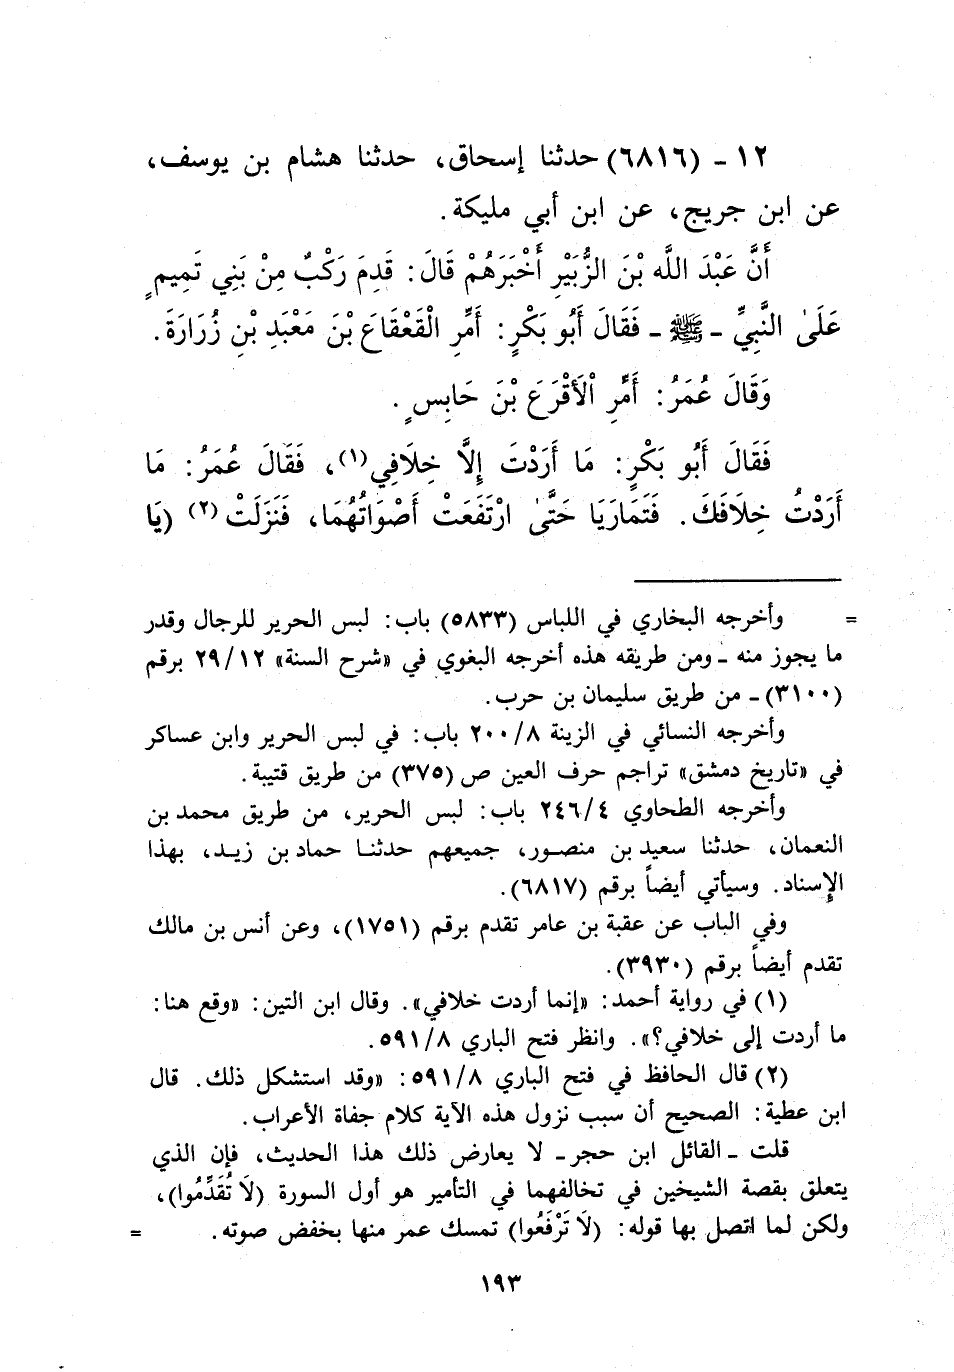 ١٢ - (٦٨١٦) حدثنا إسحاق، حدثنا هشام بن يوسف،
عن ابن جريج، عن ابن أبي مليكة.
أَنَّ عَبْدَ اللَّه بْنَ الزُّبَيْرِ أَخْبَرَهُمْ قَالَ: قَدِمَ رَكْبٌ مِنْ بَنِي تَمِيمٍ
عَلَىٰ النَّبِيِّ - ﷺ - فَقَالَ أَبُو بَكْرٍ: أَمِّرِ الْقَعْقَاعَ بْنَ مَعْبَدِ بْنِ زُرَارَةَ.
وَقَالَ عُمَرُ: أَمِّرِ الْأَقْرَعَ بْنَ حَابِسٍ.
فَقَالَ أَبُو بَكْرٍ: مَا أَرَدْتَ إِلَّا خِلَافِي(١)، فَقَالَ عُمَرُ: مَا
أَرَدْتُ خِلَافَكَ. فَتَمَارَيَا حَتَّىٰ ارْتَفَعَتْ أَصْوَاتُهُمَا، فَنَزَلَتْ(٢) (يَا
= وأخرجه البخاري في اللباس (٥٨٣٣) باب: لبس الحرير للرجال وقدر
ما يجوز منه - ومن طريقه هذه أخرجه البغوي في «شرح السنة» ٢٩/١٢ برقم
(٣١٠٠) - من طريق سليمان بن حرب.
وأخرجه النسائي في الزينة ٢٠٠/٨ باب: في لبس الحرير وابن عساكر
في «تاريخ دمشق» تراجم حرف العين ص (٣٧٥) من طريق قتيبة.
وأخرجه الطحاوي ٢٤٦/٤ باب: لبس الحرير، من طريق محمد بن
النعمان، حدثنا سعيد بن منصور، جميعهم حدثنا حماد بن زيد، بهذا
الإسناد. وسيأتي أيضاً برقم (٦٨١٧).
وفي الباب عن عقبة بن عامر تقدم برقم (١٧٥١)، وعن أنس بن مالك
تقدم أيضاً برقم (٣٩٣٠).
(١) في رواية أحمد: «إنما أردت خلافي». وقال ابن التين: «وقع هنا:
ما أردت إلى خلافي؟». وانظر فتح الباري ٥٩١/٨.
(٢) قال الحافظ في فتح الباري ٥٩١/٨: «وقد استشكل ذلك. قال
ابن عطية: الصحيح أن سبب نزول هذه الآية كلام جفاة الأعراب.
قلت - القائل ابن حجر - لا يعارض ذلك هذا الحديث، فإن الذي
يتعلق بقصة الشيخين في تخالفهما في التأمير هو أول السورة (لَا تُقَدِّمُوا)،
ولكن لما اتصل بها قوله: (لَا تَرْفَعُوا) تمسك عمر منها بخفض صوته. =
١٩٣